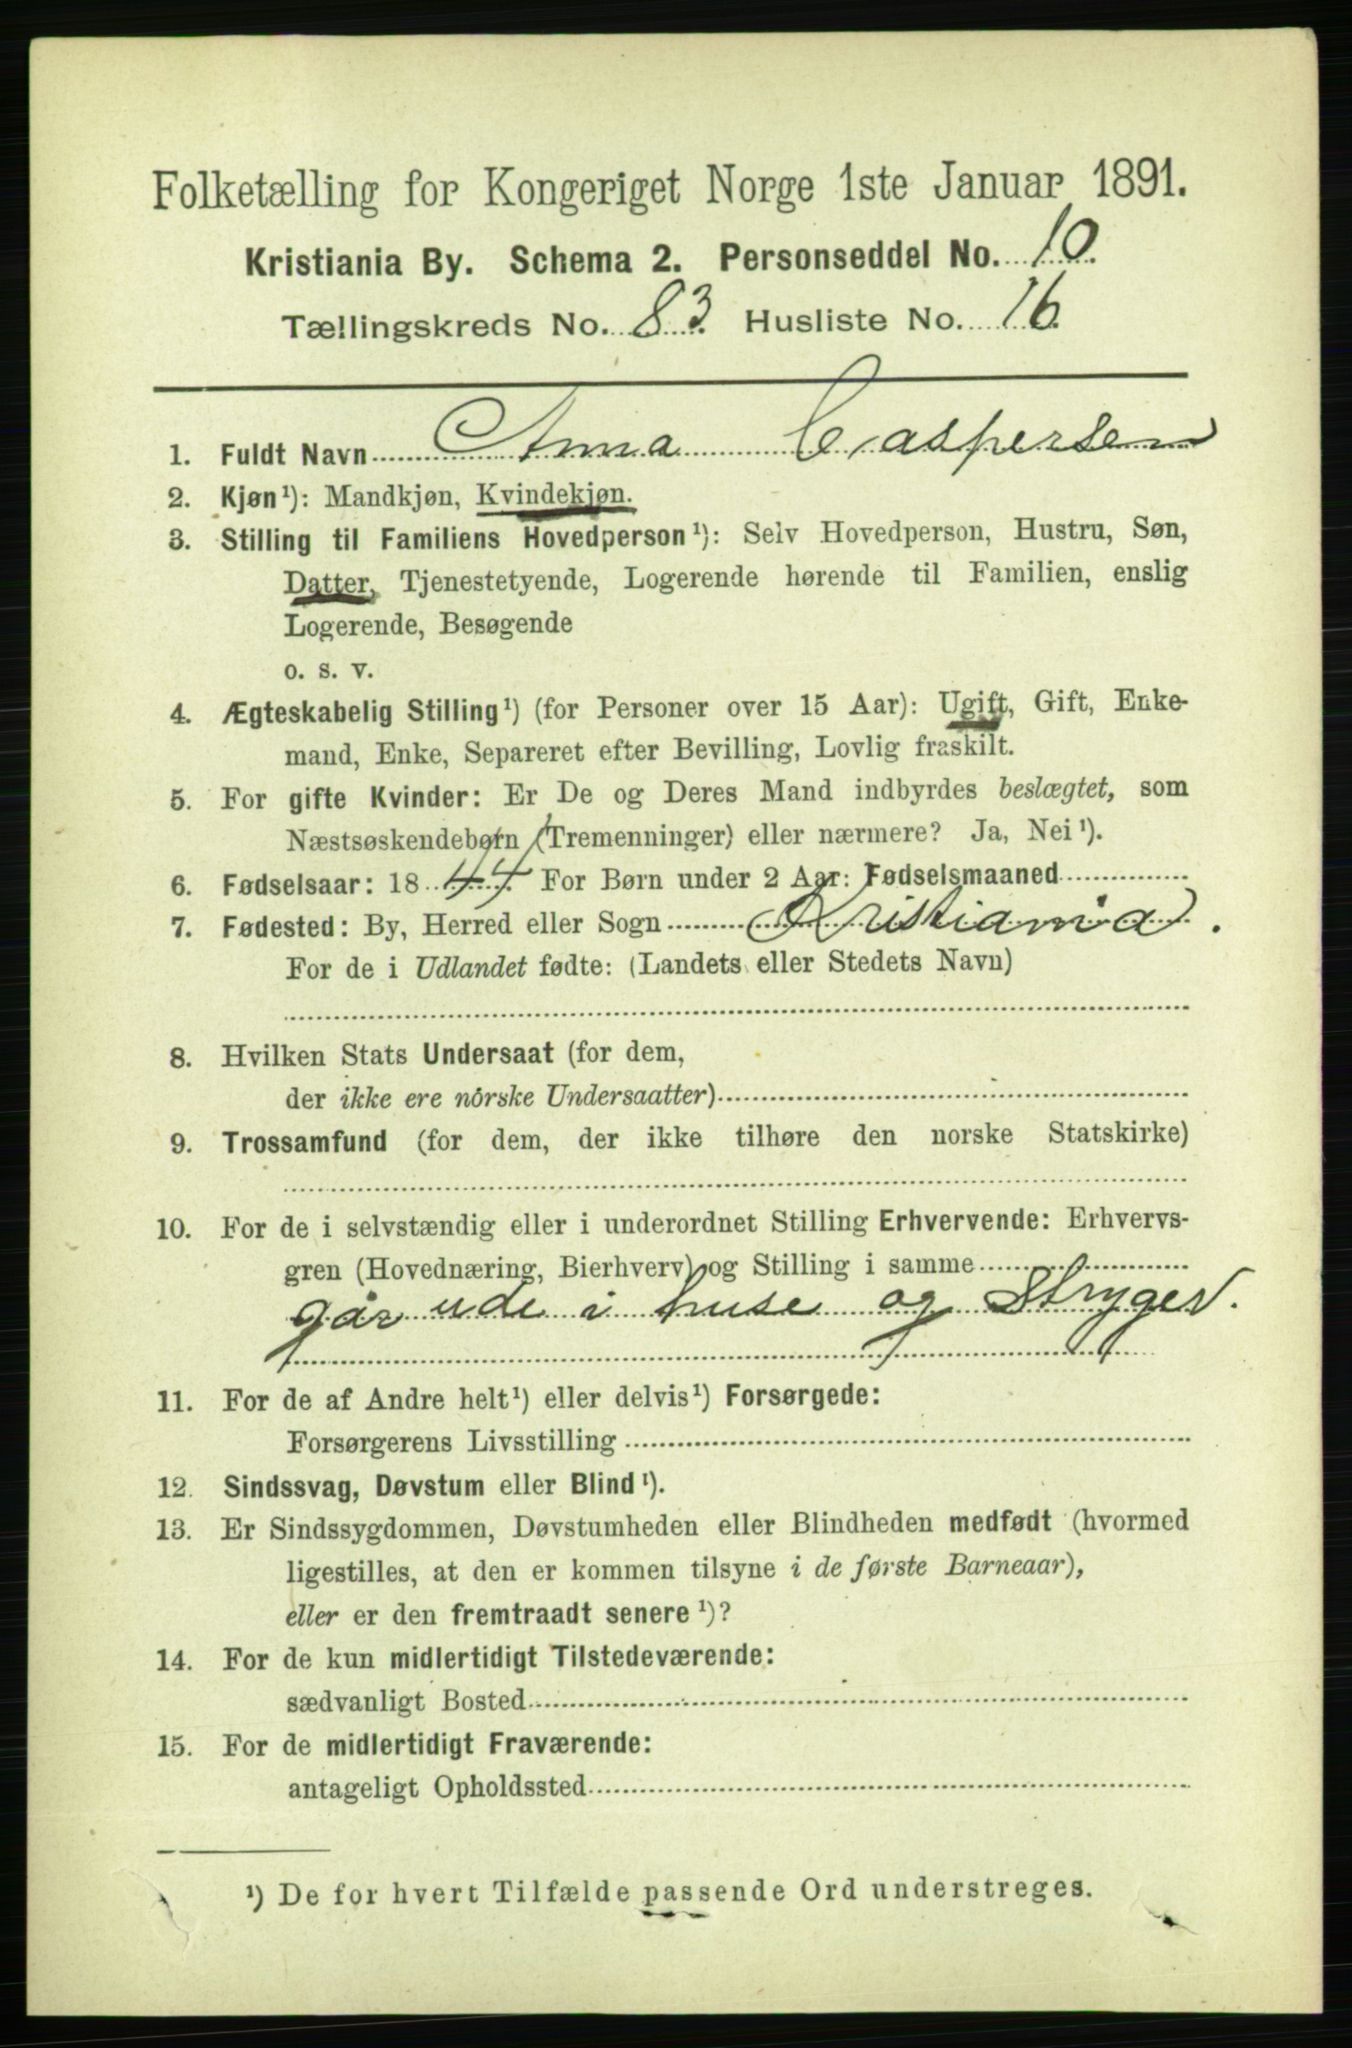 Folketælling for Kongeriget Norge 1ste Januar 1891.
Kristiania By. Schema 2. Personseddel No. 10.
Tællingskreds No. 83. Husliste No. 16.
1. Fuldt Navn Anna Caspersen
2. Kjøn¹): Mandkjøn, Kvindekjøn.
3. Stilling til Familiens Hovedperson¹): Selv Hovedperson, Hustru, Søn,
Datter, Tjenestetyende, Logerende hørende til Familien, enslig
Logerende, Besøgende
o. s. v.
4. Ægteskabelig Stilling¹) (for Personer over 15 Aar): Ugift, Gift, Enke-
mand, Enke, Separeret efter Bevilling, Lovlig fraskilt.
5. For gifte Kvinder: Er De og Deres Mand indbyrdes beslægtet, som
Næstsøskendebørn (Tremenninger) eller nærmere? Ja, Nei¹).
6. Fødselsaar: 1844. For Børn under 2 Aar: Fødselsmaaned
7. Fødested: By, Herred eller Sogn Kristiania.
For de i Udlandet fødte: (Landets eller Stedets Navn)
8. Hvilken Stats Undersaat (for dem,
der ikke ere norske Undersaatter)
9. Trossamfund (for dem, der ikke tilhøre den norske Statskirke)
10. For de i selvstændig eller i underordnet Stilling Erhvervende: Erhvervs-
gren (Hovednæring, Bierhverv) og Stilling i samme
går ude i huse og Stryger.
11. For de af Andre helt¹) eller delvis¹) Forsørgede:
Forsørgerens Livsstilling
12. Sindssvag, Døvstum eller Blind¹).
13. Er Sindssygdommen, Døvstumheden eller Blindheden medfødt (hvormed
ligestilles, at den er kommen tilsyne i de første Barneaar),
eller er den fremtraadt senere¹)?
14. For de kun midlertidigt Tilstedeværende:
sædvanligt Bosted
15. For de midlertidigt Fraværende:
antageligt Opholdssted
¹) De for hvert Tilfælde passende Ord understreges.